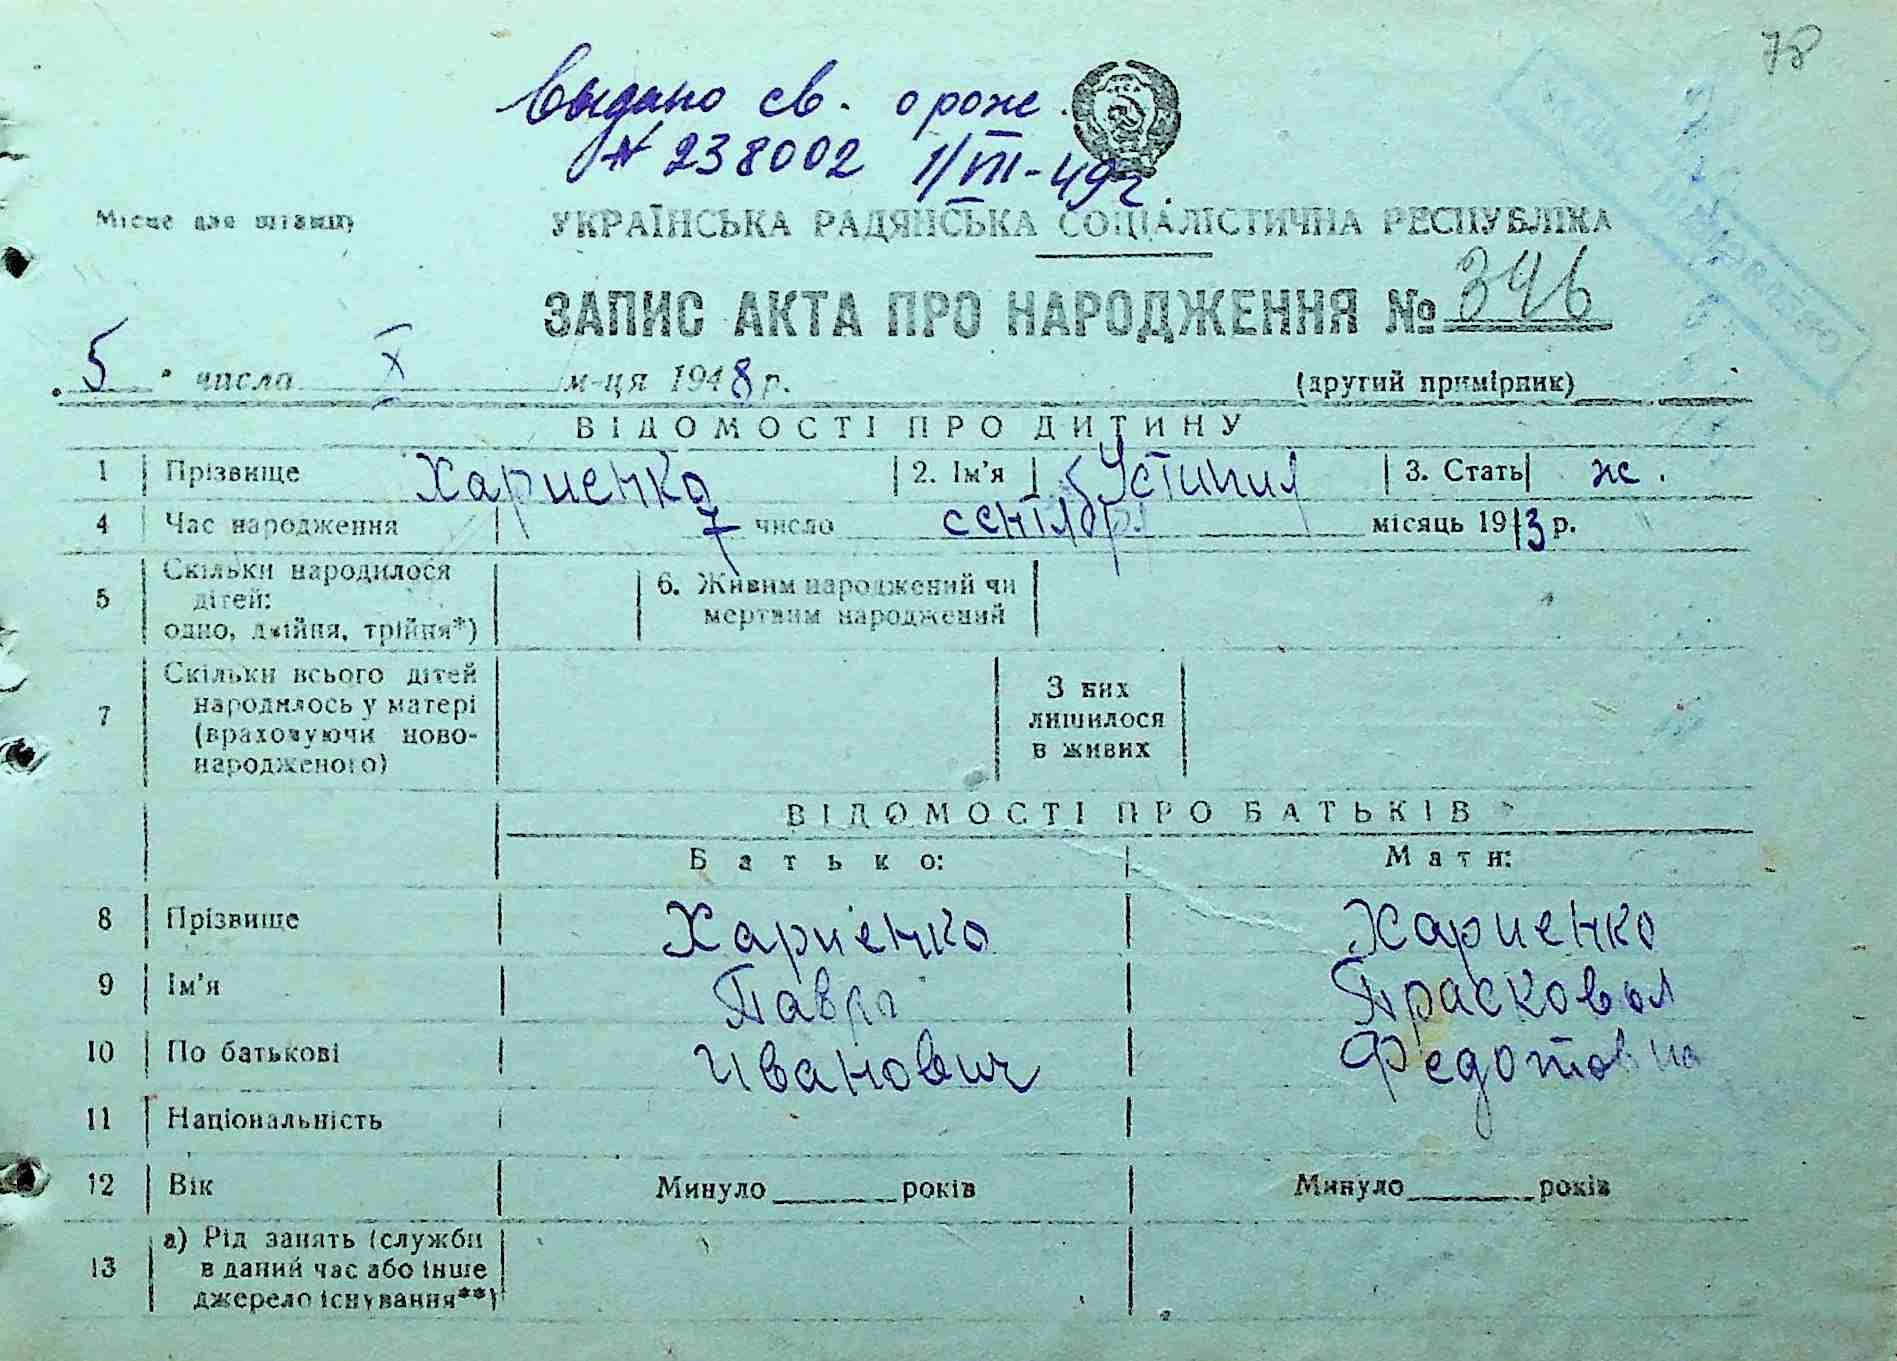 78
Выдано св. о рожд.
№ 238002 1/VII-49г.
Місце для штампу
УКРАЇНСЬКА РАДЯНСЬКА СОЦІАЛІСТИЧНА РЕСПУБЛІКА
ЗАПИС АКТА ПРО НАРОДЖЕННЯ № 346
„5“ числа X м-ця 1948 р. (другий примірник)
ВІДОМОСТІ ПРО ДИТИНУ
1 Прізвище Хариенко 2. Ім'я Устиния 3. Стать ж.
4 Час народження 7 число сентября місяць 1913 р.
5 Скільки народилося
дітей:
одно, двійня, трійня*)
6. Живим народжений чи
мертвим народжений
7 Скільки всього дітей
народилось у матері
(враховуючи ново-
народженого)
З них
лишилося
в живих
ВІДОМОСТІ ПРО БАТЬКІВ
Батько: Мати:
8 Прізвище Хариенко Хариенко
9 Ім'я Павел Прасковья
10 По батькові Иванович Федотовна
11 Національність
12 Вік Минуло ______ років Минуло ______ років
13 а) Рід занять (служби
в даний час або інше
джерело існування**)